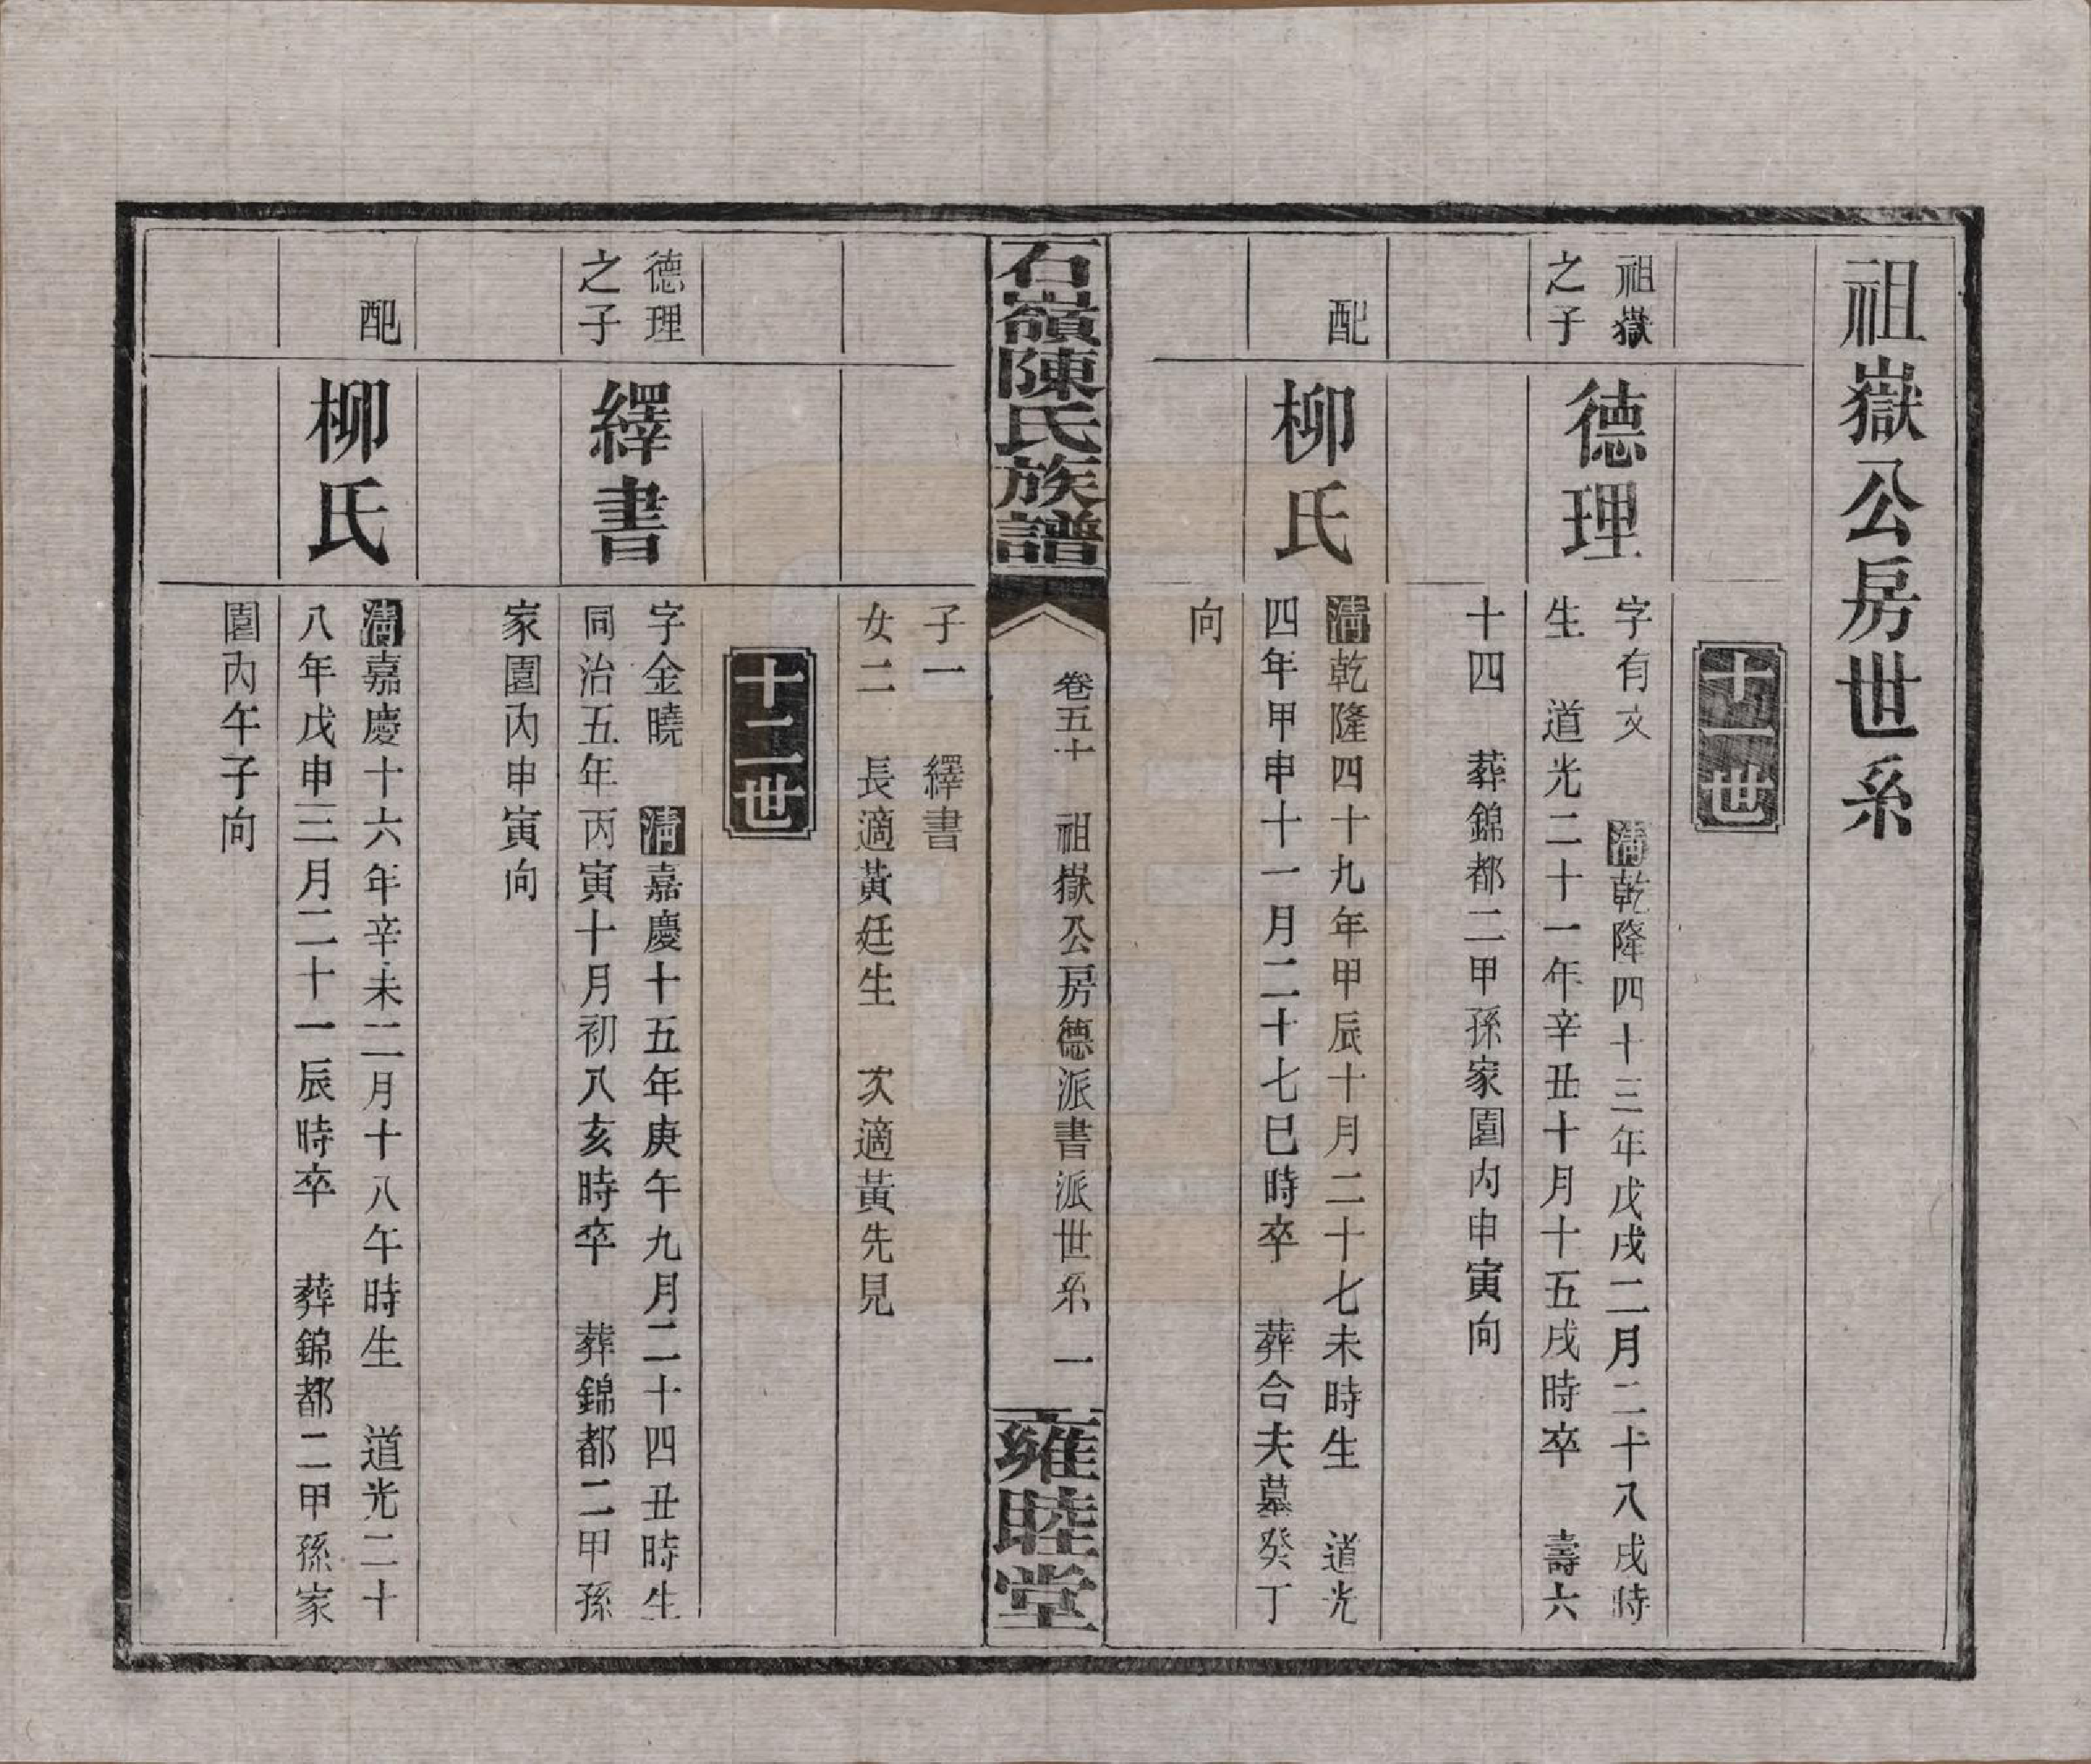 祖嶽公房世系
十一世
祖嶽
之子
德理
字有文 清乾隆四十三年戊戌二月二十八戌時
生 道光二十一年辛丑十月十五戌時卒 壽六
十四 葬錦都二甲孫家園內申寅向
配
柳氏
清乾隆四十九年甲辰十月二十七未時生 道光
四年甲申十一月二十七巳時卒 葬合夫墓癸丁
向
石嶺陳氏族譜
卷五十 祖嶽公房德派書派世系 一
雍睦堂
子一 繹書
女二 長適黃廷生 次適黃先見
十二世
德理
之子
繹書
字金曉 清嘉慶十五年庚午九月二十四丑時生
同治五年丙寅十月初八亥時卒 葬錦都二甲孫
家園內申寅向
配
柳氏
清嘉慶十六年辛未二月十八午時生 道光二十
八年戊申三月二十一辰時卒 葬錦都二甲孫家
園內午子向